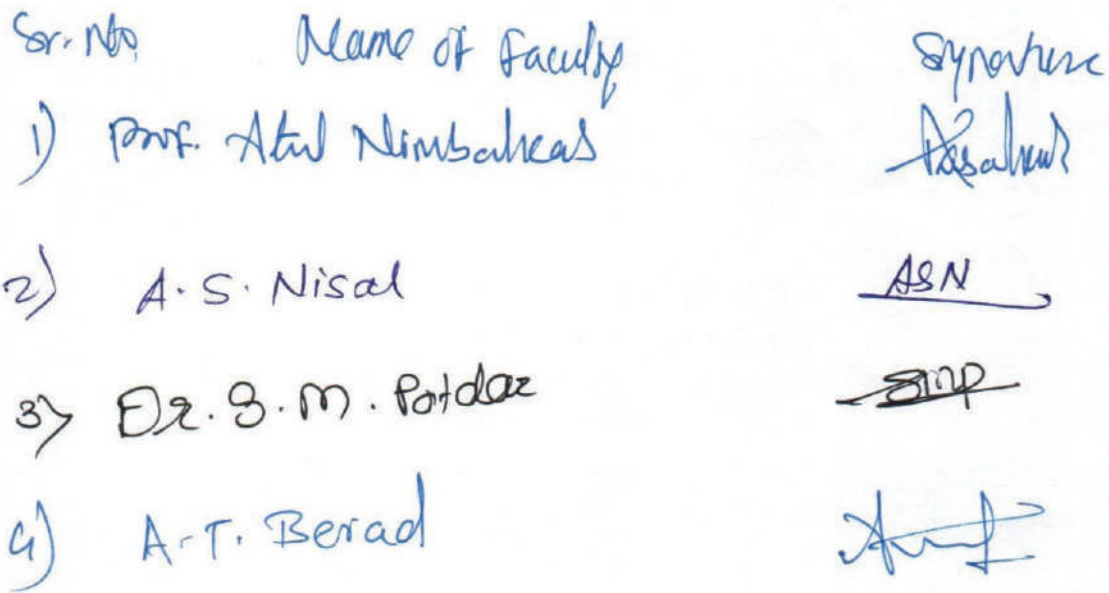 Sr. No. Name of Faculty Signature
1) Prof. Atul Nimbalkar
2) A. S. Nisal ASN
3) Dr. S. M. Potdar SMP
4) A. T. Berad